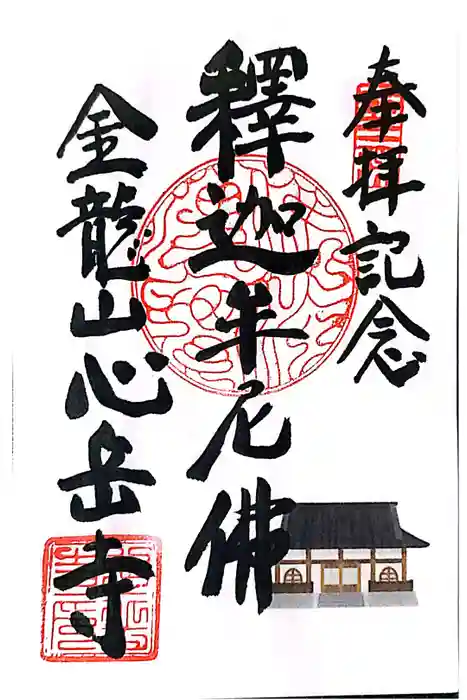 奉拝記念
釋迦牟尼佛
金龍山心岳寺